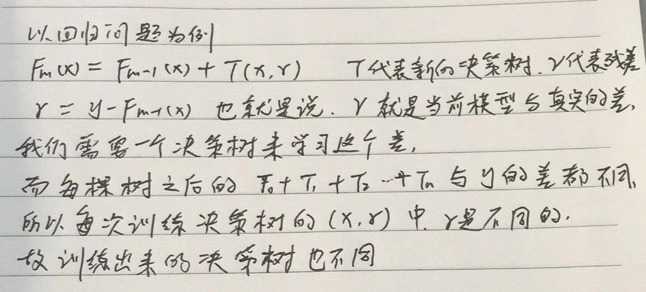 以回归问题为例
Fm(x) = Fm-1(x) + T(x,r)　T代表新的决策树.r代表残差
r = y-Fm-1(x) 也就是说.r就是当前模型与真实的差,
我们需要一个决策树来学习这个差,
而每棵树之后的 F0+T1+T2…+Tn 与y的差都不同,
所以每次训练决策树的(x,r)中.r是不同的.
故训练出来的决策树也不同